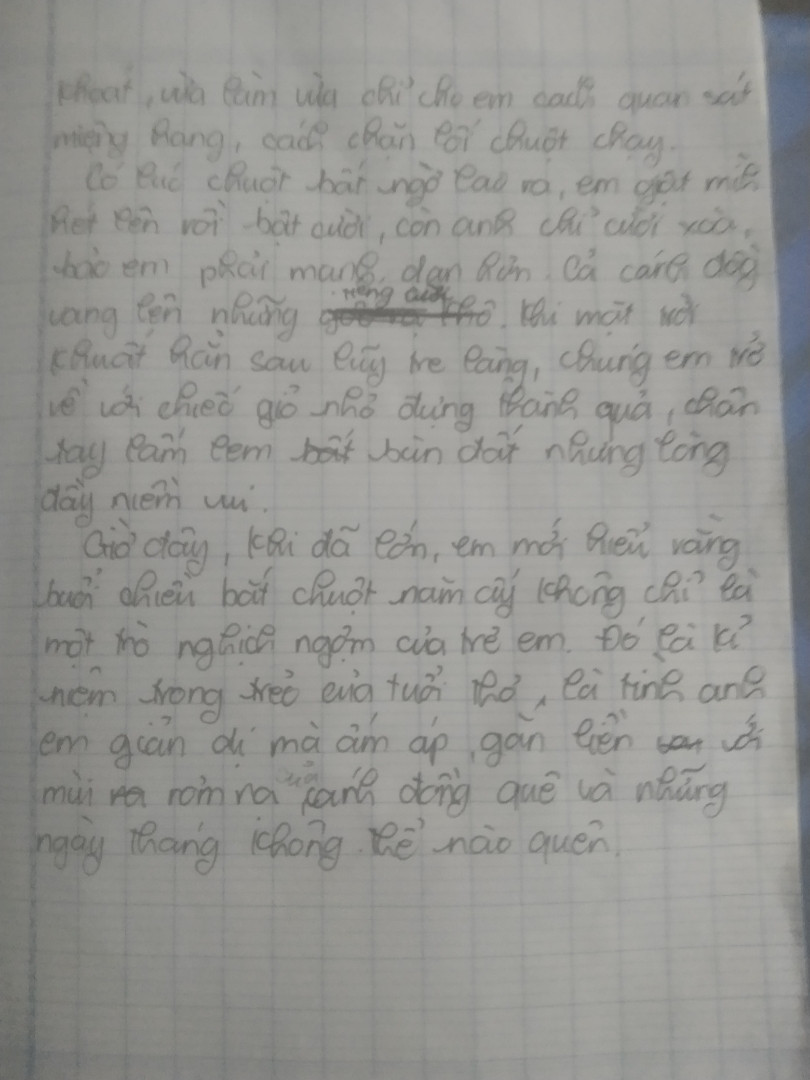 khoát, vừa làm vừa chỉ cho em cách quan sát
miệng hang, cách chặn lối chuột chạy.
Có lúc chuột bất ngờ lao ra, em giật mình
hét lên rồi bật cười, còn anh chỉ cười xòa,
bảo em phải mạnh dạn hơn. Cả cánh đồng
vang lên những tiếng cười. Khi mặt trời
khuất hẳn sau lũy tre làng, chúng em trở
về với chiếc giỏ nhỏ đựng thành quả, chân
tay lấm lem bùn đất nhưng lòng
đầy niềm vui.
Giờ đây, khi đã lớn, em mới hiểu rằng
buổi chiều bắt chuột năm ấy không chỉ là
một trò nghịch ngợm của trẻ em. Đó là kỉ
niệm trong trẻo của tuổi thơ, là tình anh
em giản dị mà ấm áp, gắn liền với
mùi rơm rạ của cánh đồng quê và những
ngày tháng không thể nào quên.